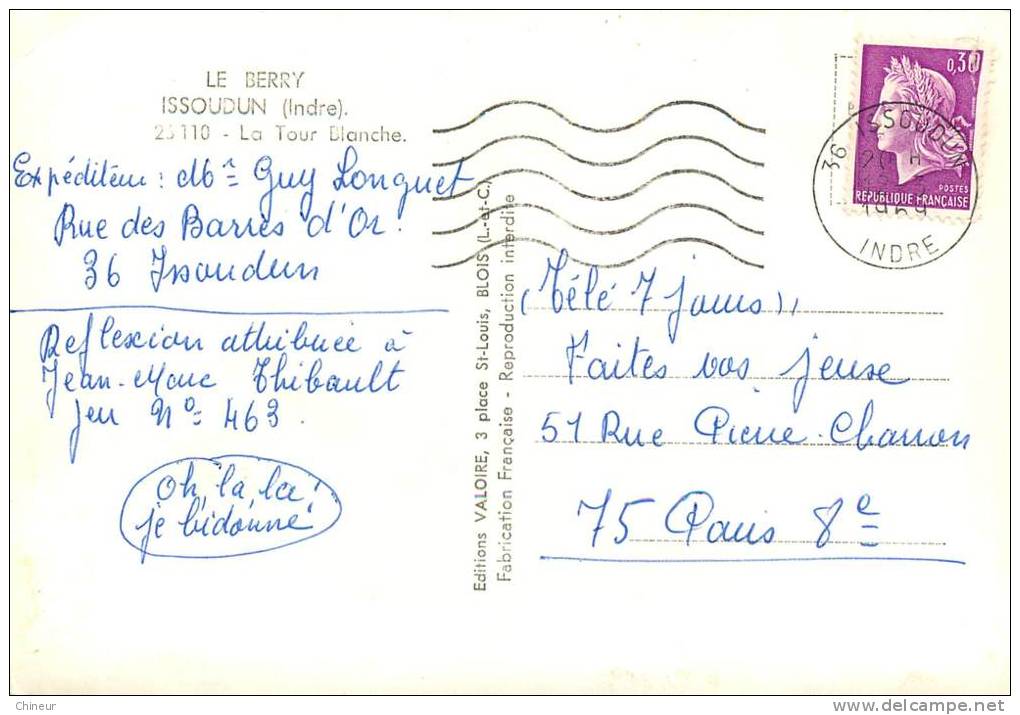 LE BERRY
ISSOUDUN (Indre).
- La Tour Blanche.
Expéditeur : Mr Guy Longuet
Rue des Barres d'Or.
36 Issoudun
Reflexion attribuée à
Jean-Marc Thibault
jeu No= 463.
Oh, la, la!
je bidonne!
Editions VALOIRE, 3 place St-Louis, BLOIS (L.-et-C.)
Fabrication Française - Reproduction interdite
0,30
POSTES
REPUBLIQUE FRANÇAISE
36 ISSOUDUN
20 H
1969
INDRE
(Télé 7 jours),
Faites vos jeuse
51 Rue Pierre-Charron
75 Paris 8e
Chineur
www.delcampe.net